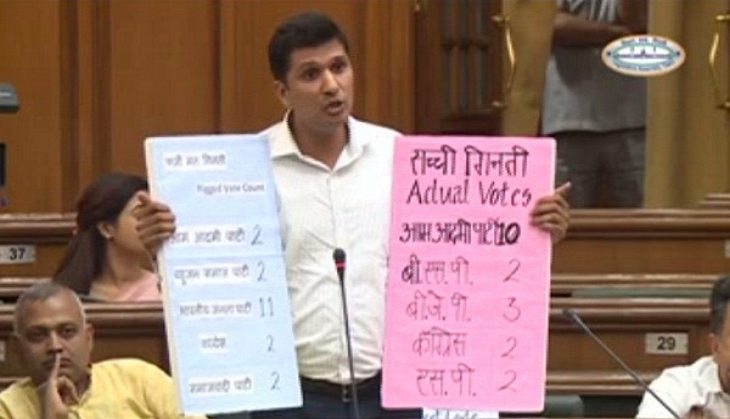 फर्जी मत गिनती
Rigged Vote Count
आम आदमी पार्टी 2
बहुजन समाज पार्टी 2
भारतीय जनता पार्टी 11
कांग्रेस 2
समाजवादी पार्टी 2
सच्ची गिनती
Actual Votes
आम आदमी पार्टी 10
बी.एस.पी. 2
बी.जे.पी. 3
काँग्रेस 2
एस.पी. 2
37
29